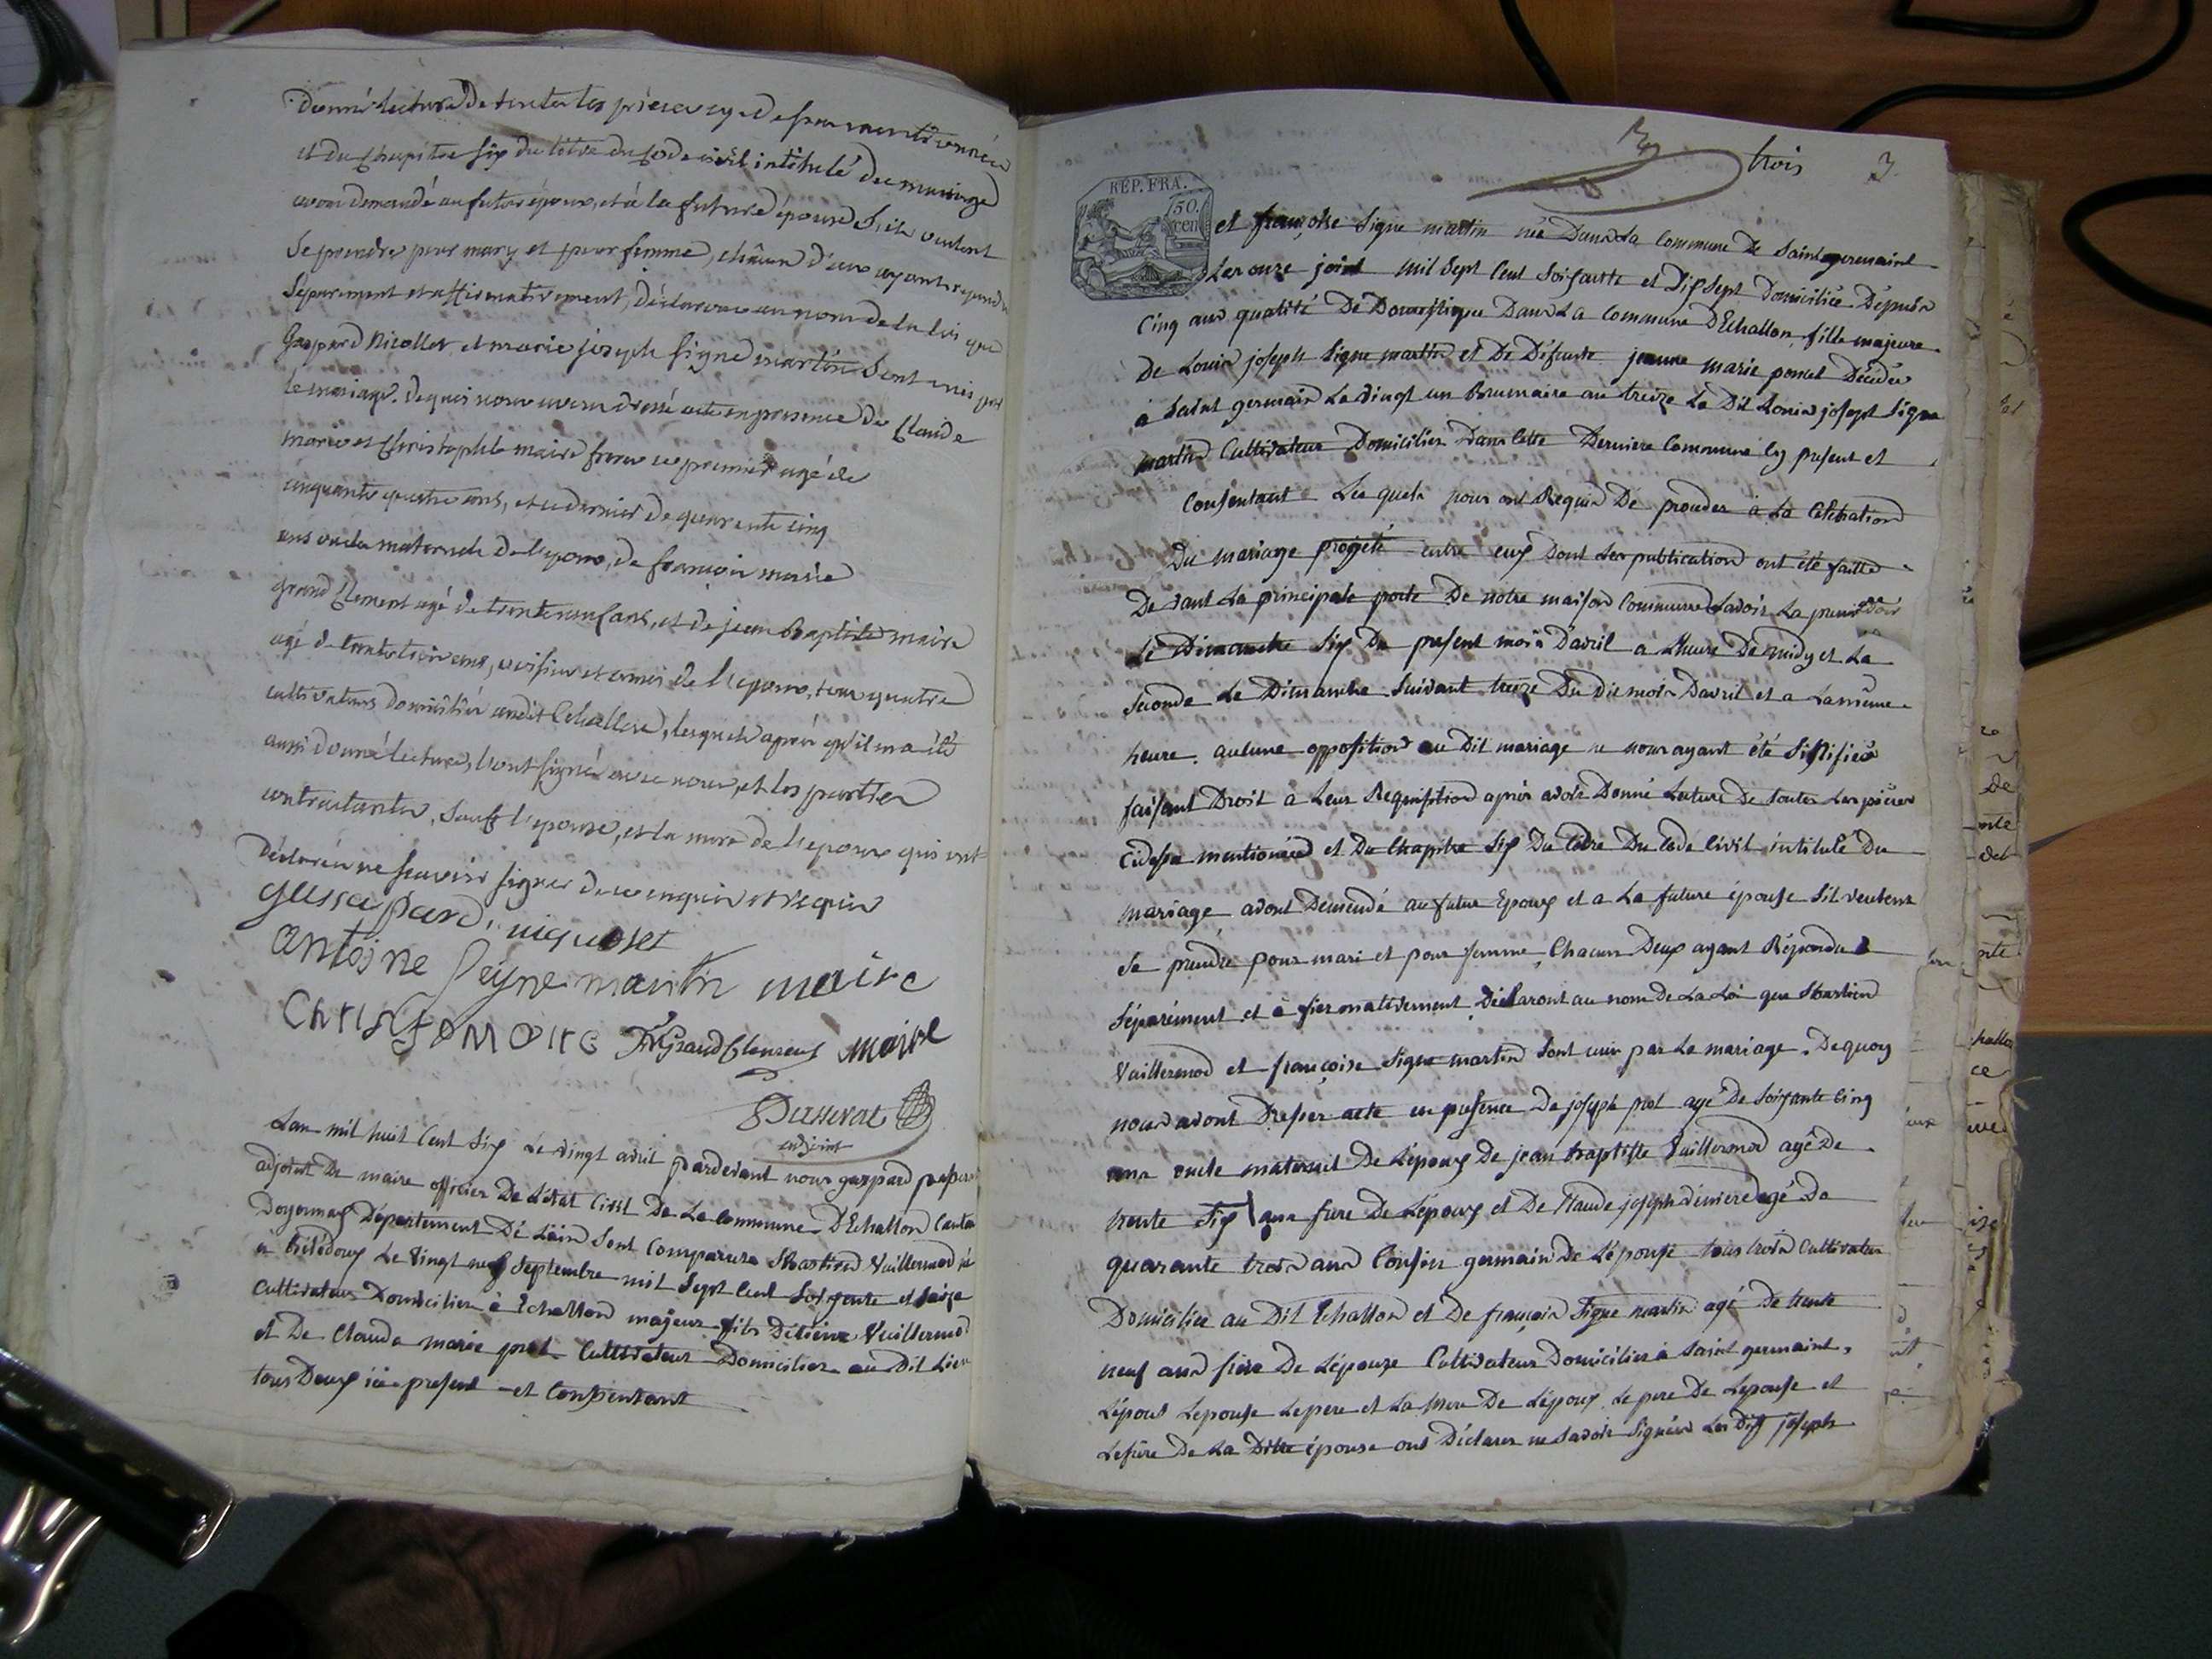 Donné lecture de toutes les pièces cy-dessus mentionnées
et du chapitre six du titre du code civil intitulé du mariage
avons demandé au futur époux, et à la future épouse s'ils veulent
se prendre pour mary et pour femme, chacun d'eux ayant repondu
séparement et affirmativement, déclarons au nom de la loi que
Gaspard Nicollet et marie joseph signe martin sont unis par
le mariage. de quoi nous avons dressé acte en presence de Claude
marie et Christophle maire freres le premier agé de
cinquante quatre ans, et le dernier de quarente cinq
ans oncles maternels de l'epoux, de francois marie
grand Clement agé de trente neuf ans, et de jean Baptiste maire
agé de trente trois ans, voisins et amis de l'epoux, tous quatre
cultivateurs domiciliés audit Echallon, lesquels après qu'il en a été
aussi donné lecture, l'ont signé avec nous, et les parties
contractantes, sauf l'epouse, et la mere de l'epoux qui ont
déclaré ne scavoir signer de ce enquis et requis
niquolet
antoine seyne martin maire
Christo maire FM Grand Clement maire
Passerat
adjoint
Lan mil huit Cent Six le vingt avril pardevant nous gaspard passerat
adjoint De maire officier De Létat Civil De La Commune DEchallon Canton
Doyonnax Département De Lain Sont Comparus Sbastien Vuillermod né
a le vingt neuf Septembre mil Sept Cent Soixente et Seize
Cultivateur Domicilier à Echallon majeur fils Détiene Vuillermod
et De Claude marie prot Cultivateur Domicilier au Dit Lieu
tous Deux ici present et Consentant
trois 3
REP. FRA.
50.
cen.
et françoise Signe martin née Dans La Commune De Saint germaint
Les onze join mil Sept Cent Soixante et Dix Sept Domiciliée Depuis
Cinq ans qualité De Domestique Dans La Commune DEchallon fille majeure
De Louis joseph Signe martin et De Défeunte jeanne marie poncet Décédée
à Saint germain Le vingt un Brumaire an treize Le Dit Louis joseph Signe
martin Cultivateur Domicilier Dans Cette Derniere Commune Cy present et
Consentant Les quels nous ont Requis De proceder à La Celebration
Du mariage projeté entre eux Dont Les publication ont été faitte
De vant La principale porte De notre maison Commune Savoir La premiere
Le Dimanche Six Du present mois Davril a Lheure De midy et La
Seconde Le Dimanche Suivant treize Du Dit mois Davril et a La même
heure, aucune opposition au Dit mariage ne nous ayant été Sinifiée
faisant Droit a Leur Requisition après avoir Donné Lecture De toutes Les pièces
Cidessu mentionnée et Du Chapitre Six Du titre Du Code Civil intitulé Du
mariage avont Demendé au futur Epoux et a La future épouse Sil veulent
Se prendre pour mari et pour femme, Chacun Deux ayant Répondu
Séparément et à firmativement Déclaront au nom de La Loi que Sbastien
Vuillermod et françoise Signe martin Sont unis par Le mariage. De quoy
nous avont Dresser acte en presence De joseph prot agé De Soixante Cinq
ans oncle maternel De Lépoux De jean baptiste Vuillermod agé De
trente Six ans frere De Lépoux et De Claude joseph agé De
quarante trois ans Cousin germain De Lépouse tous trois Cultivateur
Domicilier au Dit Echallon et De françois Signe martin agé De trente
neuf ans frere De Lépouze Cultivateur Domicilier à Saint germaint,
Lépous Lepouse Le pere et La Mere De Lépoux Le pere De Lepouse et
Lefrere De La Ditte épouse ont Déclarer ne Savoir Signer Les Dit joseph